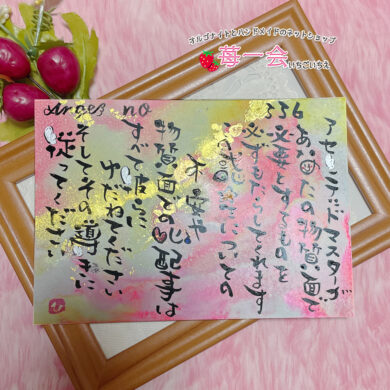 オルゴナイトとハンドメイドのネットショップ
苺一会
いちごいちえ
Angel no
336
アセンデッドマスターが
あなたの物質面で
必要とするものを
必ずもたらしてくれます
についての
不安や
物質面での心配事は
すべて彼らに
ゆだねてください
そしてその導きに
従ってください